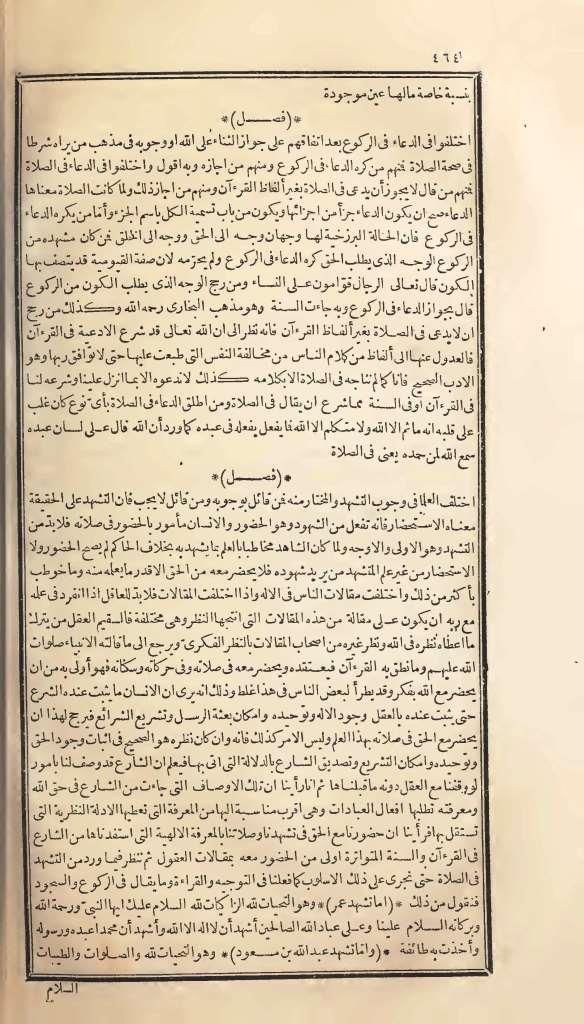 ٤٦٤
بنسبة خاصة مالها عين موجودة
*(فصـــل)*
اختلفوا فى الدعاء فى الركوع بعد اتفاقهم على جواز الثناء على الله أو وجوبه فى مذهب من يراه شرطا
فى صحة الصلاة فمنهم من كره الدعاء فى الركوع ومنهم من اجازه وبه اقول واختلفوا فى الدعاء فى الصلاة
فمنهم من قال لا يجوز أن يدعى فى الصلاة بغير ألفاظ القرءآن ومنهم من اجاز ذلك ولما كانت الصلاة معناها
الدعاء صح ان يكون الدعاء جزأ من اجزائها ويكون من باب تسمية الكل باسم الجزء وأما من يكره الدعاء
فى الركوع فان الحالة البرزخية لها وجهان وجه الى الحق ووجه الى الخلق فمن كان مشهده من
الركوع الوجه الذى يطلب الحق كره الدعاء فى الركوع ولم يحرّمه لان صفة القيومية قد يتصف بها
الكون قال تعالى الرجال قوّامون على النساء ومن رجح الوجه الذى يطلب الكون من الركوع
قال بجواز الدعاء فى الركوع وبه جاءت السنة وهو مذهب البخارى رحمه الله وكذلك من رجح
ان لا يدعى فى الصلاة بغير ألفاظ القرءآن فانه نظر الى ان الله تعالى قد شرع الادعية فى القرءآن
فالعدول عنها الى ألفاظ من كلام الناس من مخالفة النفس التى طبعت عليها حتى لا توافق ربها وهو
الادب الصحيح فانا كما لم نناجه فى الصلاة الا بكلامه كذلك لا ندعوه الا بما انزل علينا وشرعه لنا
فى القرءآن أو فى السنة مما شرع ان يقال فى الصلاة ومن اطلق الدعاء فى الصلاة بأى نوع كان غلب
على قلبه انه ما ثم الا الله ولا متكلم الا الله فما يفعل يفعله فى عبده كما ورد أن الله قال على لسان عبده
سمع الله لمن حمده يعنى فى الصلاة
*(فصـــل)*
اختلف العلماء فى وجوب التشهد والمختار منه فمن قائل بوجوبه ومن قائل لا يجب فان التشهد على الحقيقة
معناه الاستحضار فانه تفعل من الشهود وهو الحضور والانسان مأمور بالحضور فى صلاته فلا بدّ من
التشهد وهو الاولى والاوجه ولما كان الشاهد مخاطبا بالعلم بما يشهد به بخلاف الحاكم لم يصح الحضور ولا
الاستحضار من غير علم المتشهد من يريد شهوده فلا يحضر معه من الحق الا قدر ما يعلمه منه وما خوطب
بأكثر من ذلك واختلفت مقالات الناس فى الاله واذا اختلفت المقالات فلا بدّ للعاقل اذا انفرد فى علمه
مع ربه ان يكون على مقالة من هذه المقالات التى انتجها النظر وهى مختلفة فالسقيم العقل من يترك
ما اعطاه نظره فى الله ونظر غيره من اصحاب المقالات بالنظر الفكرى ويرجع الى ما قالته الانبياء صلوات
الله عليهم وما نطق به القرءآن فيعتقده ويحضر معه فى صلاته وفى حركاته وسكناته فهو أولى به من ان
يحضر مع الله بفكر وقد يطرأ لبعض الناس فى هذا غلط وذلك انه يرى ان الانسان ما يثبت عنده الشرع
حتى يثبت عنده بالعقل وجود الاله وتوحيده وامكان بعثة الرسل وتشريع الشرائع فيرجح لهذا ان
يحضر مع الحق فى صلاته بهذا العلم وليس الامر كذلك فانه وان كان نظره هو الصحيح فى اثبات وجود الحق
وتوحيده وامكان التشريع وتصديق الشارع بالدلالة التى اتى بها فيعلم ان الشارع قد وصف لنا بأمور
لو وقفنا مع العقل دونه ما قبلناها ثم انا رأينا ان تلك الاوصاف التى جاءت من الشارع فى حق الله
ومعرفته تطلبها افعال العبادات وهى اقرب مناسبة اليها من المعرفة التى تعطيها الادلة النظرية التى
تستقل بها فرأينا ان حضورنا مع الحق فى تشهدنا وصلاتنا بالمعرفة الالهية التى استفدناها من الشارع
فى القرءآن والسنة المتواترة اولى من الحضور معه بمقالات العقول ثم ننظر فيما ورد من التشهد
فى الصلاة حتى نجرى على ذلك الاسلوب كما فعلنا فى التوجيه والقراءة وما يقال فى الركوع والسجود
فنقول من ذلك *(اما تشهد عمر)* وهو التحيات لله الزاكيات لله السلام عليك ايها النبىّ ورحمة الله
وبركاته السلام علينا وعلى عباد الله الصالحين أشهد أن لا اله الا الله وأشهد أن محمدا عبده ورسوله
وأخذت به طائفة *(واما تشهد عبد الله بن مسعود)* وهو التحيات لله والصلوات والطيبات
السلام